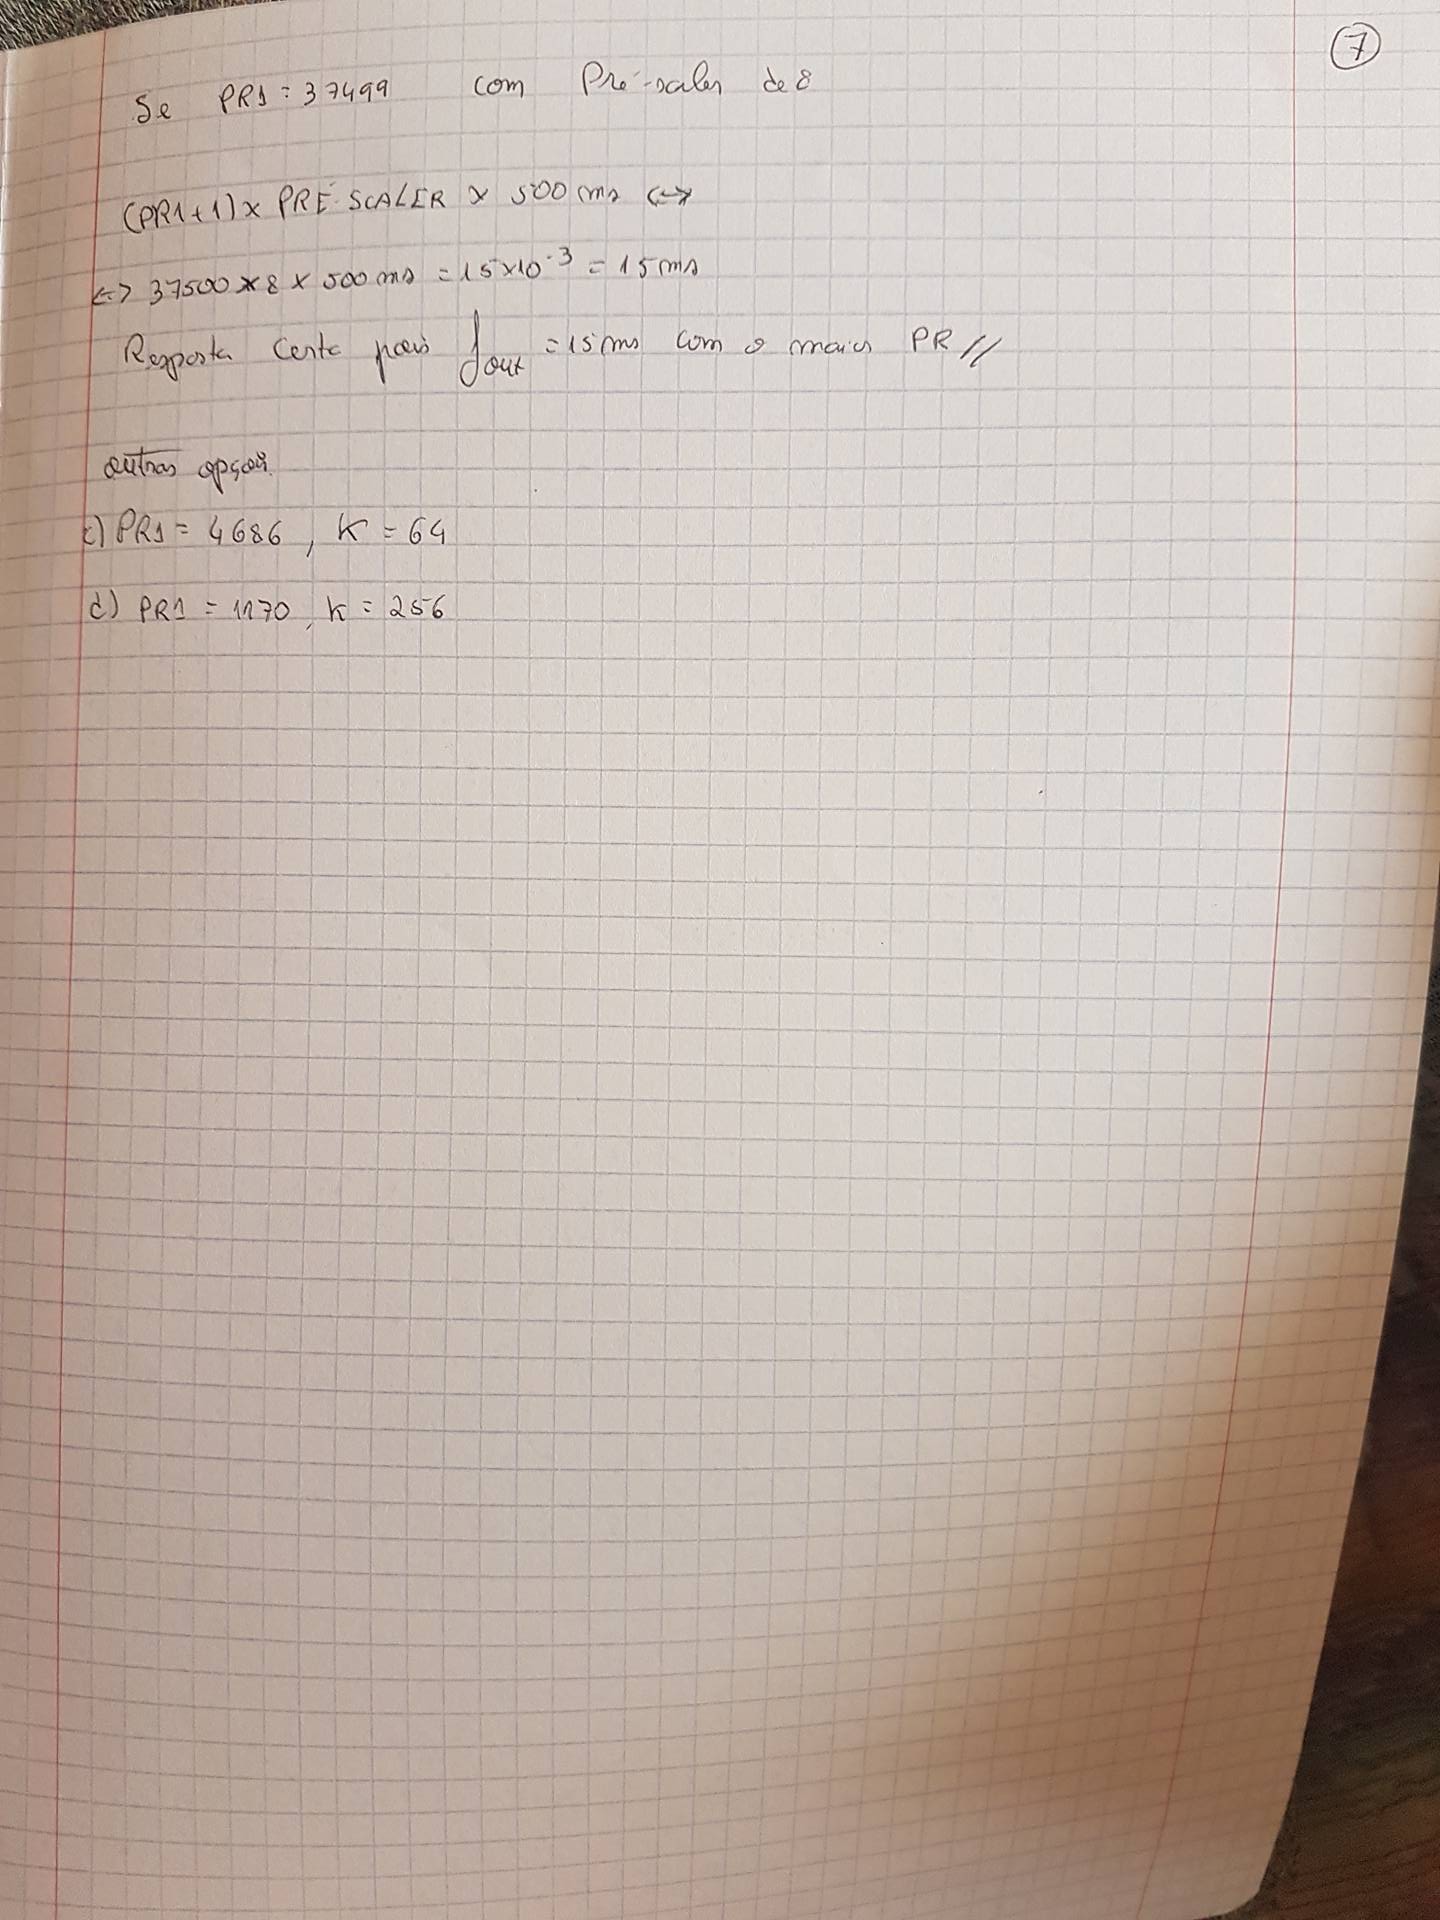 7
Se PR1 = 37499 com Pré-scaler de 8
(PR1+1) x PRÉ-SCALER x 500 ns <->
<-> 37500 x 8 x 500 ns = 15x10^-3 = 15 ms
Resposta Certa pois fout = 15 ms com o maior PR //
outras opções.
c) PR1 = 4686, K = 64
d) PR1 = 1170, K = 256